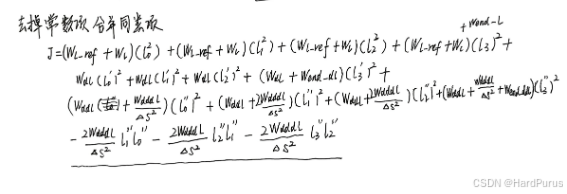 去掉常数项 合并同类项
+ Wend-L
J=(WL-ref + WL)(l0²) + (WL-ref + WL)(l1²) + (WL-ref + WL)(l2²) + (WL-ref + WL)(l3)² +
Wdl(l0')² + Wdl(l1')² + Wdl(l2')² + (Wdl + Wend-dl)(l3')² +
(Wddl + Wdddl/Δs²)(l0'')² + (Wddl + 2Wdddl/Δs²)(l1'')² + (Wddl + 2Wdddl/Δs²)(l2'')² + (Wddl + Wdddl/Δs² + Wend-ddl)(l3'')²
- 2Wdddl/Δs² l1'' l0'' - 2Wdddl/Δs² l2'' l1'' - 2Wdddl/Δs² l3'' l2''
CSDN @HardPurus